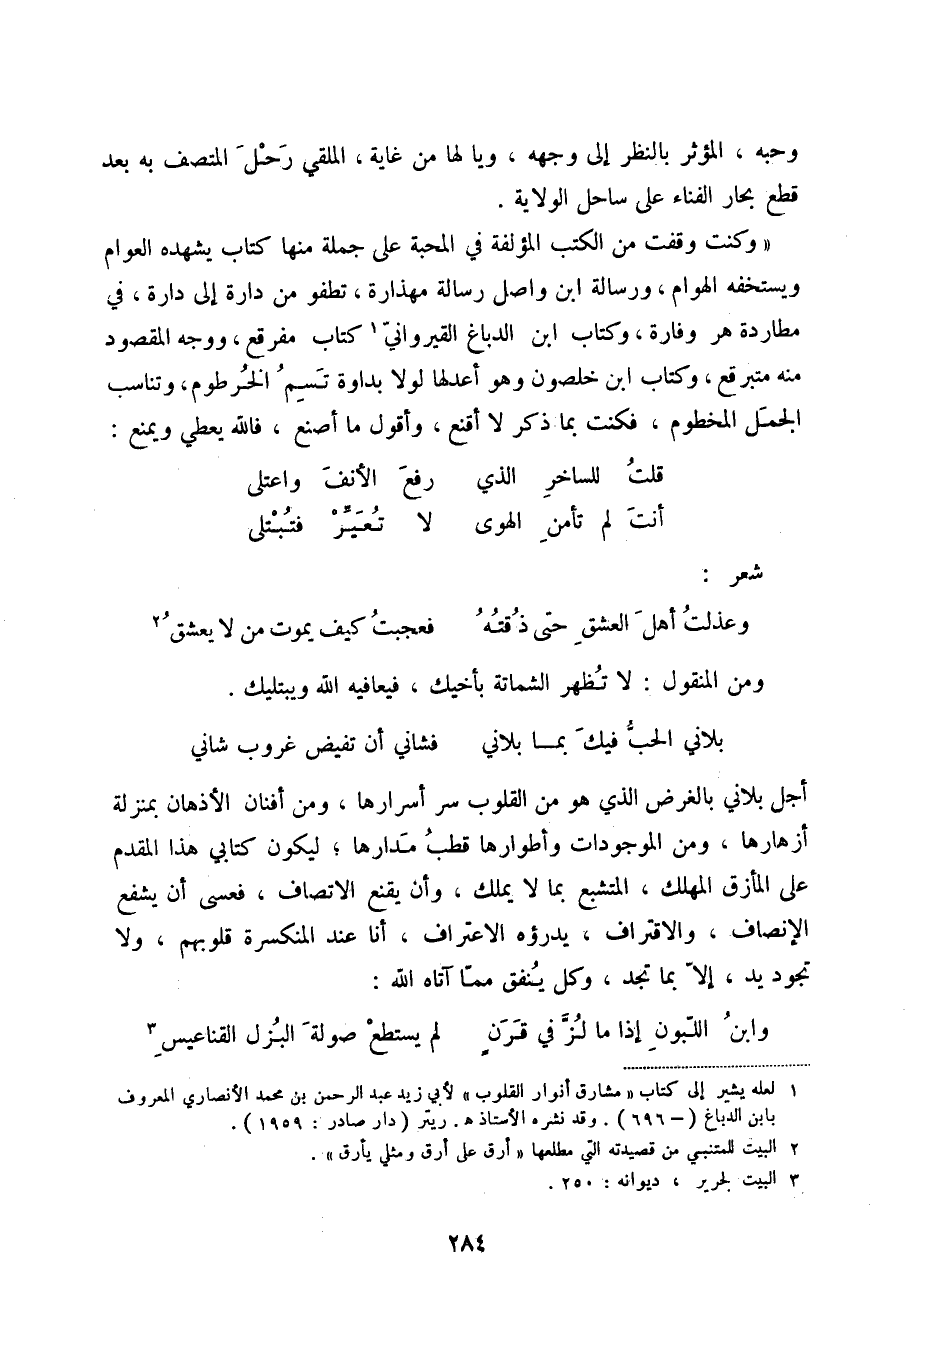 وحبه ، المؤثر بالنظر إلى وجهه ، ويا لها من غاية ، الملقي رَحْلَ المتصف به بعد
قطع بحار الفناء على ساحل الولاية .
« وكنت وقفت من الكتب المؤلفة في المحبة على جملة منها كتاب يشهده العوام
ويستخفه الهوام ، ورسالة ابن واصل رسالة مهذارة ، تطفو من دارة إلى دارة ، في
مطاردة هر وفارة ، وكتاب ابن الدباغ القيروانيّ ١ كتاب مفرقع ، ووجه المقصود
منه متبرقع ، وكتاب ابن خلصون وهو أعدلها لولا بداوة تَسِمُ الخُرطوم ، وتناسب
الجمَل المخطوم ، فكنت بما ذكر لا أقنع ، وأقول ما أصنع ، فالله يعطي ويمنع :
قلتُ للساخرِ الذي رفعَ الأنفَ واعتلى
أنتَ لم تأمنِ الهوى لا تُعَيِّرْ فتُبْتلى
شعر :
وعذلتُ أهلَ العشقِ حتى ذُقتُهُ فعجبتُ كيف يموت من لا يعشقُ ٢
ومن المنقول : لا تُظهر الشماتة بأخيك ، فيعافيه الله ويبتليك .
بلاني الحبُّ فيكَ بمـا بلاني فشاني أن تفيض غروب شاني
أجل بلاني بالغرض الذي هو من القلوب سر أسرارها ، ومن أفنان الأذهان بمنزلة
أزهارها ، ومن الموجودات وأطوارها قطبُ مَدارها ؛ ليكون كتابي هذا المقدم
على المأزق المهلك ، المتشبع بما لا يملك ، وأن يقنع الاتصاف ، فعسى أن يشفع
الإنصاف ، والاقتراف ، يدرؤه الاعتراف ، أنا عند المنكسرة قلوبهم ، ولا
تجود يد ، إلاّ بما تجد ، وكل يُنفق ممّا آتاه الله :
وابنُ اللّبونِ إذا ما لُزَّ في قَرَنٍ لم يستطعْ صولةَ البُزل القناعيسِ ٣
١ لعله يشير إلى كتاب « مشارق أنوار القلوب » لأبي زيد عبد الرحمن بن محمد الأنصاري المعروف
بابن الدباغ ( – ٦٩٦ ) . وقد نشره الأستاذ ه . ريتّر ( دار صادر : ١٩٥٩ ) .
٢ البيت للمتنبي من قصيدته التي مطلعها « أرق على أرق ومثلي يأرق » .
٣ البيت لجرير ، ديوانه : ٢٥٠ .
٢٨٤